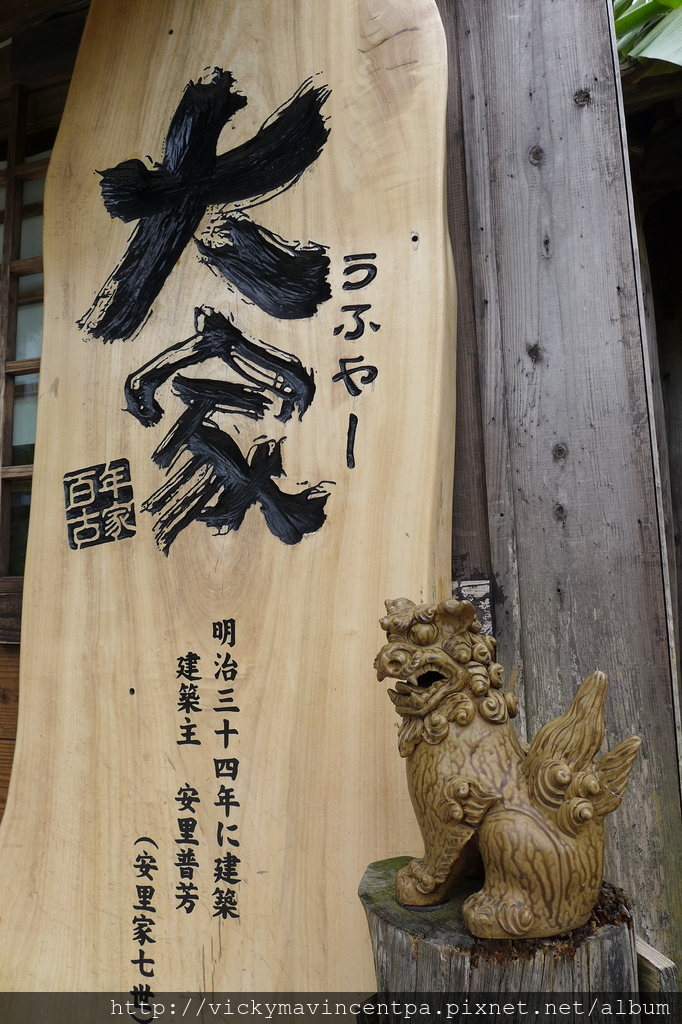 大家
うふやー
百年古家
明治三十四年に建築
建築主 安里普芳
(安里家七世)
http://vickymavincentpa.pixnet.net/album